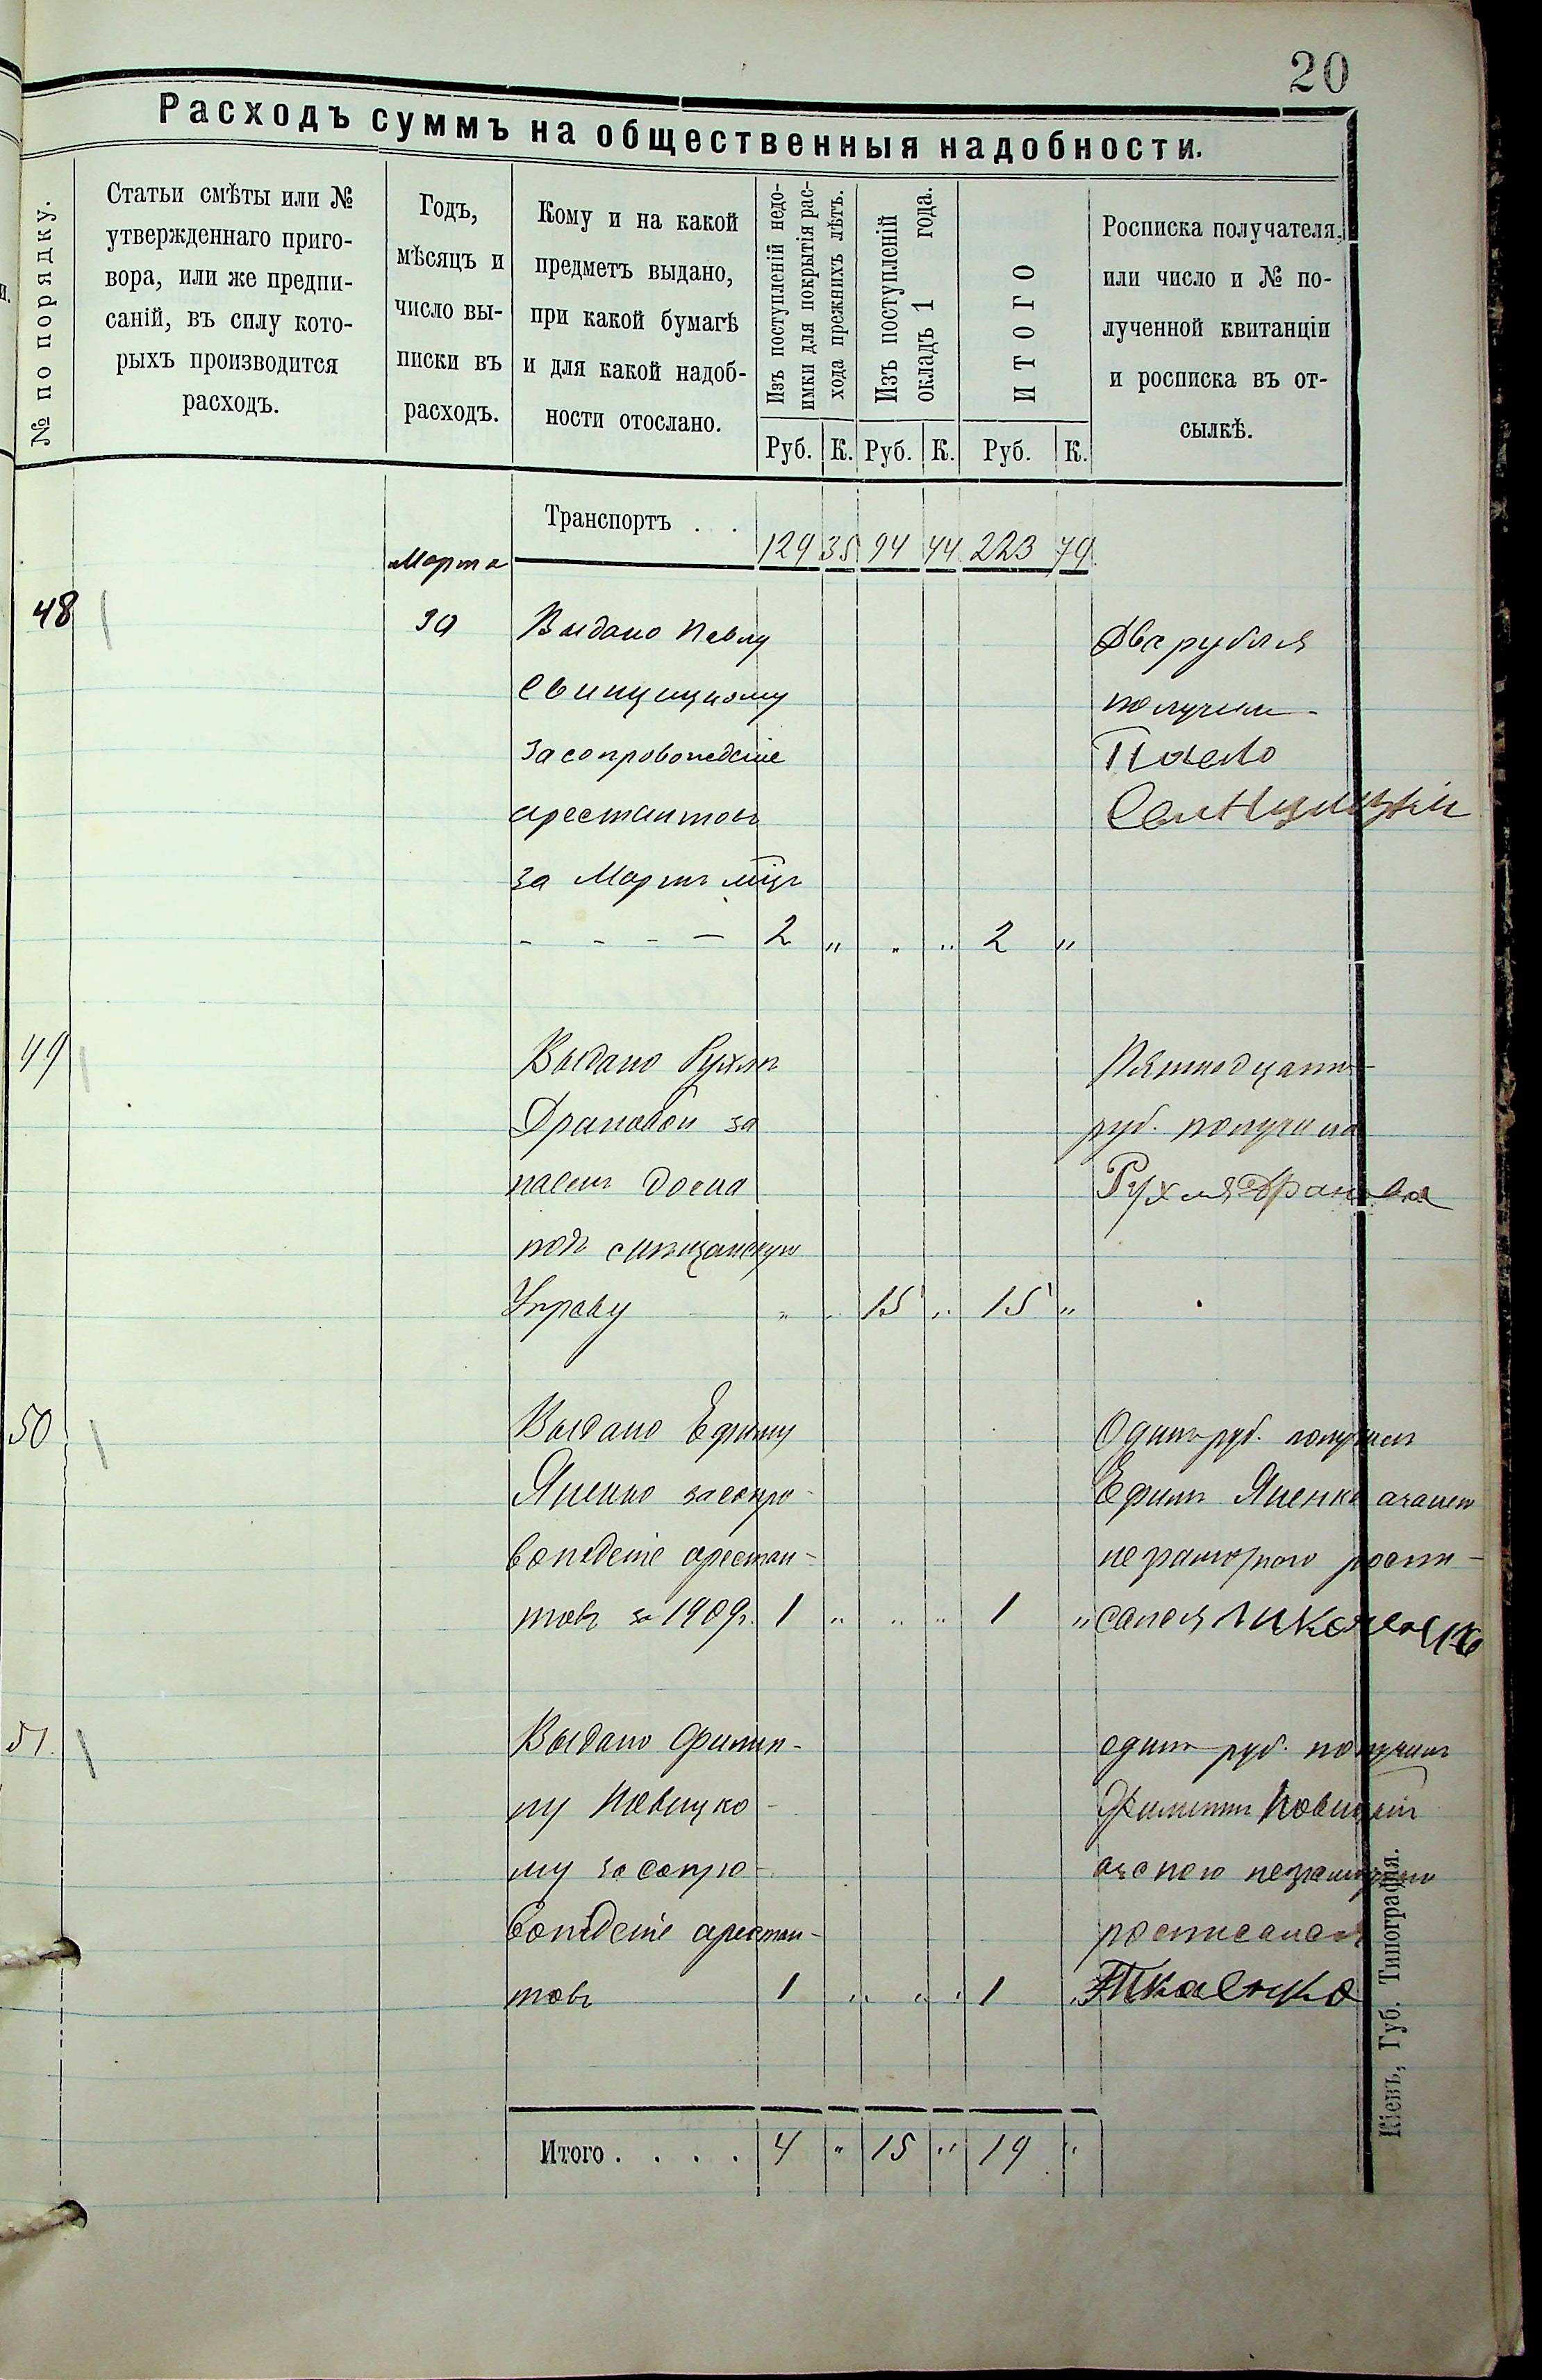 20
Расходъ суммъ на общественныя надобности.
№ по порядку.
Статьи смѣты или №
утвержденнаго приго-
вора, или же предпи-
саній, въ силу кото-
рыхъ производится
расходъ.
Годъ,
мѣсяцъ и
число вы-
писки въ
расходъ.
Кому и на какой
предметъ выдано,
при какой бумагѣ
и для какой надоб-
ности отослано.
Изъ поступленій недо-
имки для покрытія рас-
хода прежнихъ лѣтъ.
Изъ поступленій
окладъ 1 года.
ИТОГО
Росписка получателя,
или число и № по-
лученной квитанціи
и росписка въ от-
сылкѣ.
Руб. К. Руб. К. Руб. К.
Транспортъ . . 129 35 94 44 223 79
Марта
48 30 Выдано Павлу
за сопровожденіе
арестантовъ
за Мартъ мцъ
- - - - 2 „ „ „ 2 „
Два рубля
получилъ
Павло
49 Выдано Рухлѣ
Драновой за
наемъ дома
подъ мѣщанскую
Управу „ „ 15 „ 15 „
Пятнадцать
руб. получила
Рухля Дранова
50 Выдано Ефиму
Яненко за сопро-
вожденіе арестан-
товъ за 1909г. 1 „ „ „ 1 „
Одинъ руб. получилъ
Ефимъ Яненко а за него
неграмотного роспи-
сался
51. Выдано Филип-
пу Новицко-
му за сопро-
вожденіе арестан-
товъ 1 „ „ „ 1 „
одинъ руб. получилъ
Филиппъ Новицкій
а за него неграмотного
росписался
Ткаченко
Итого . . . . 4 „ 15 „ 19 „
Кіевъ, Губ. Типографія.